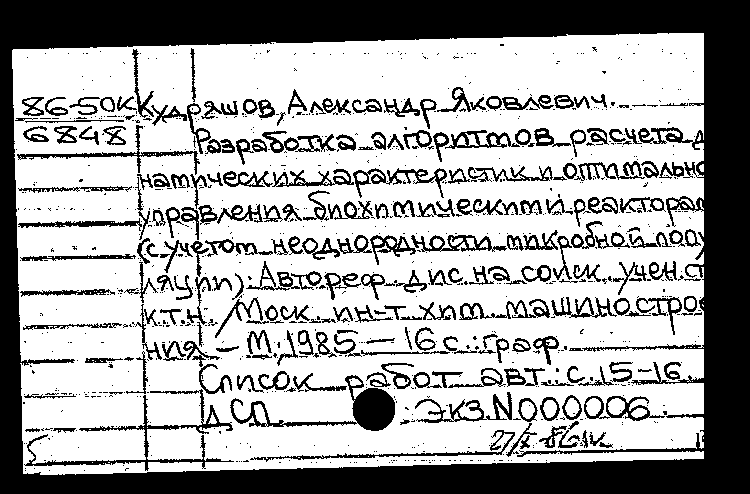 86-50К Кудряшов, Александр Яковлевич.
6848 Разработка алгоритмов расчета д
намических характеристик и оптимально
управления биохимическими реакторам
(с учетом неоднородности микробной попу
ляции): Автореф. дис. на соиск. учен. ст
к.т.н. / Моск. ин-т хим. машиностро
ния – М., 1985 – 16 с.: граф.
Список работ авт.: с. 15-16.
ДСП. Экз. N000006.
5